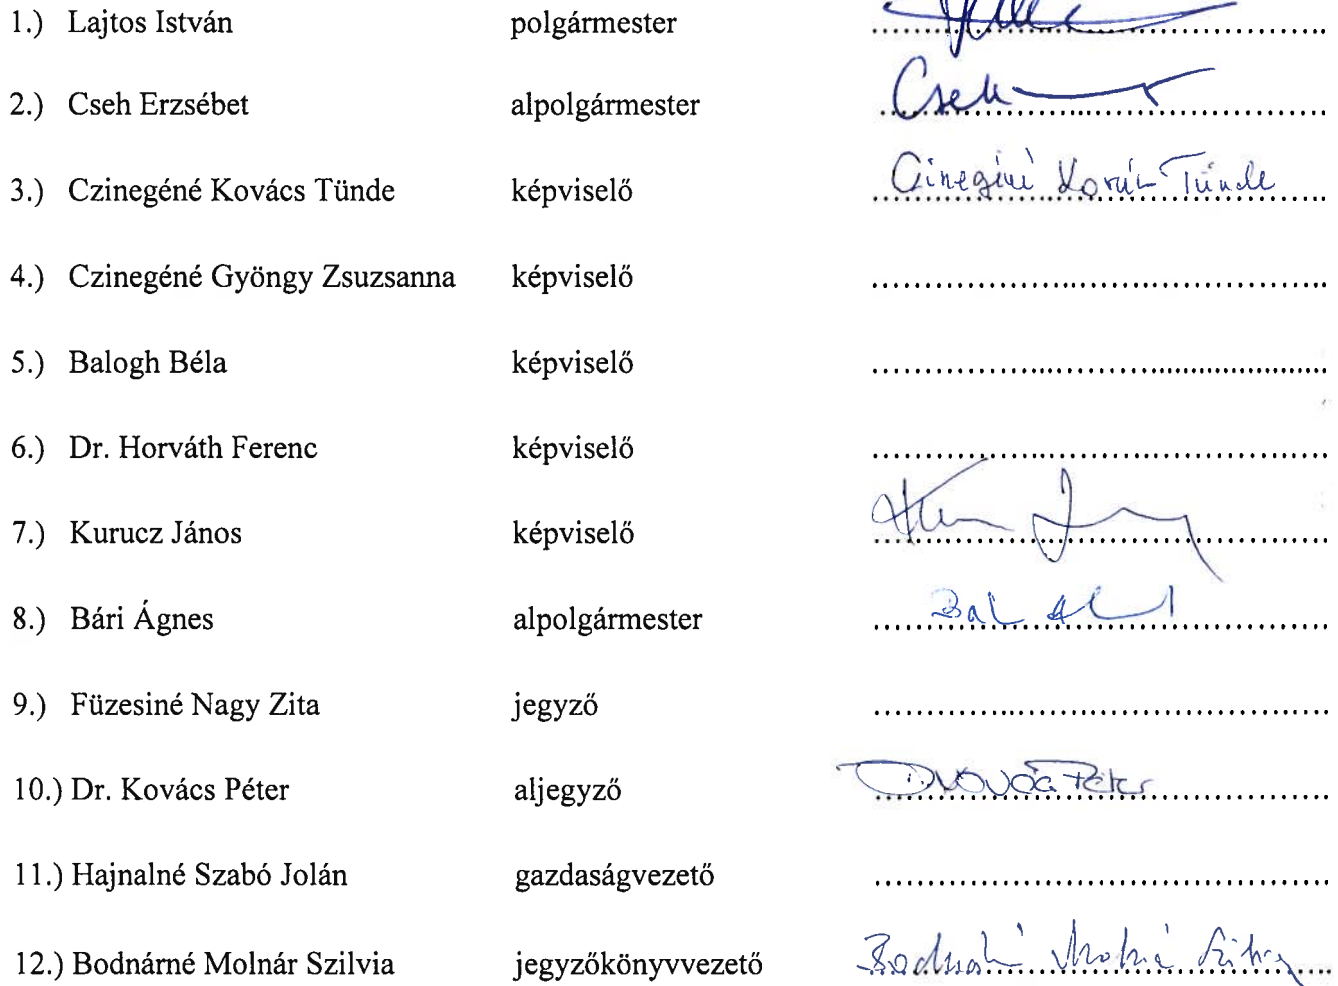 1.) Lajtos István polgármester ........................................
2.) Cseh Erzsébet alpolgármester Cseh ........................................
3.) Czinegéné Kovács Tünde képviselő Czinegéné Kovács Tünde ........................................
4.) Czinegéné Gyöngy Zsuzsanna képviselő ........................................
5.) Balogh Béla képviselő ........................................
6.) Dr. Horváth Ferenc képviselő ........................................
7.) Kurucz János képviselő ........................................
8.) Bári Ágnes alpolgármester ........................................
9.) Füzesiné Nagy Zita jegyző ........................................
10.) Dr. Kovács Péter aljegyző ........................................
11.) Hajnalné Szabó Jolán gazdaságvezető ........................................
12.) Bodnárné Molnár Szilvia jegyzőkönyvvezető ........................................